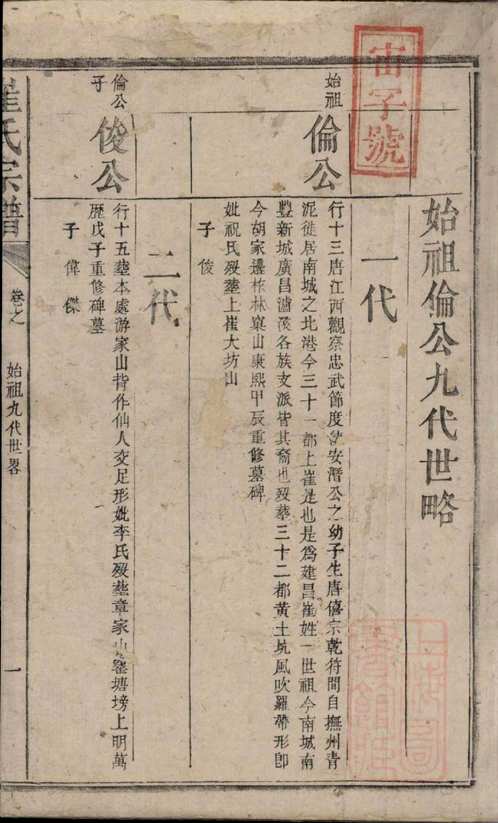 宙字號
始祖倫公九代世略
一代
始祖
倫公
行十三唐江西觀察忠武節度使安潛公之幼子生唐僖宗乾符間自撫州青
泥徙居南城之北港今三十一都上崔是也是爲建昌崔姓一世祖今南城南
豐新城廣昌瀘溪各族支派皆其裔也歿葬三十二都黃土坑風吹羅帶形卽
今胡家邊核林窠山康熙甲辰重修墓碑
妣祝氏歿葬上崔大坊山
子 俊
二代
倫公子
俊公
行十五葬本處游家山背作仙人交足形妣李氏歿葬章家山窰塘塝上明萬
歷戊子重修碑墓
子 偉 傑
崔氏宗譜
卷之
始祖九代世畧
一